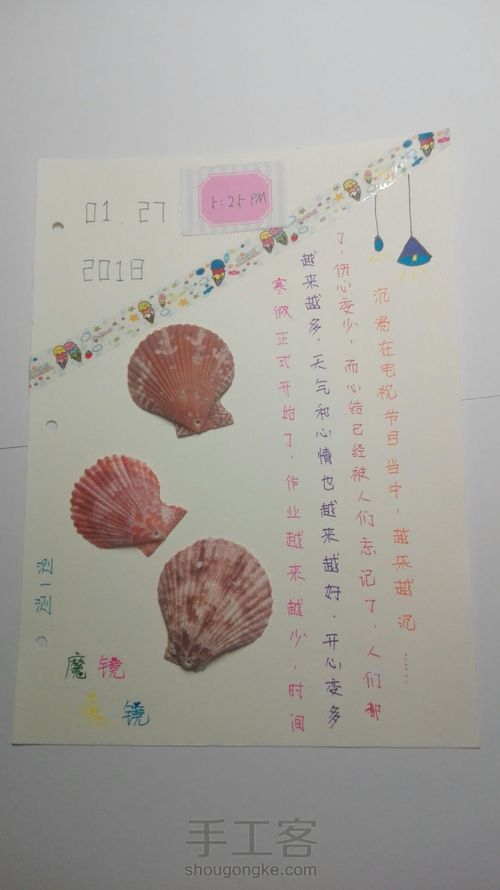 01.27
2018
5:25 PM
寒假正式开始了，作业越来越少，时间
越来越多，天气和心情也越来越好．开心变多
了，伤心变少，而心结已经被人们忘记了，人们都
沉在电视节目当中，越乐越沉……
测一测
魔镜
魔镜
手工客
shougongke.com